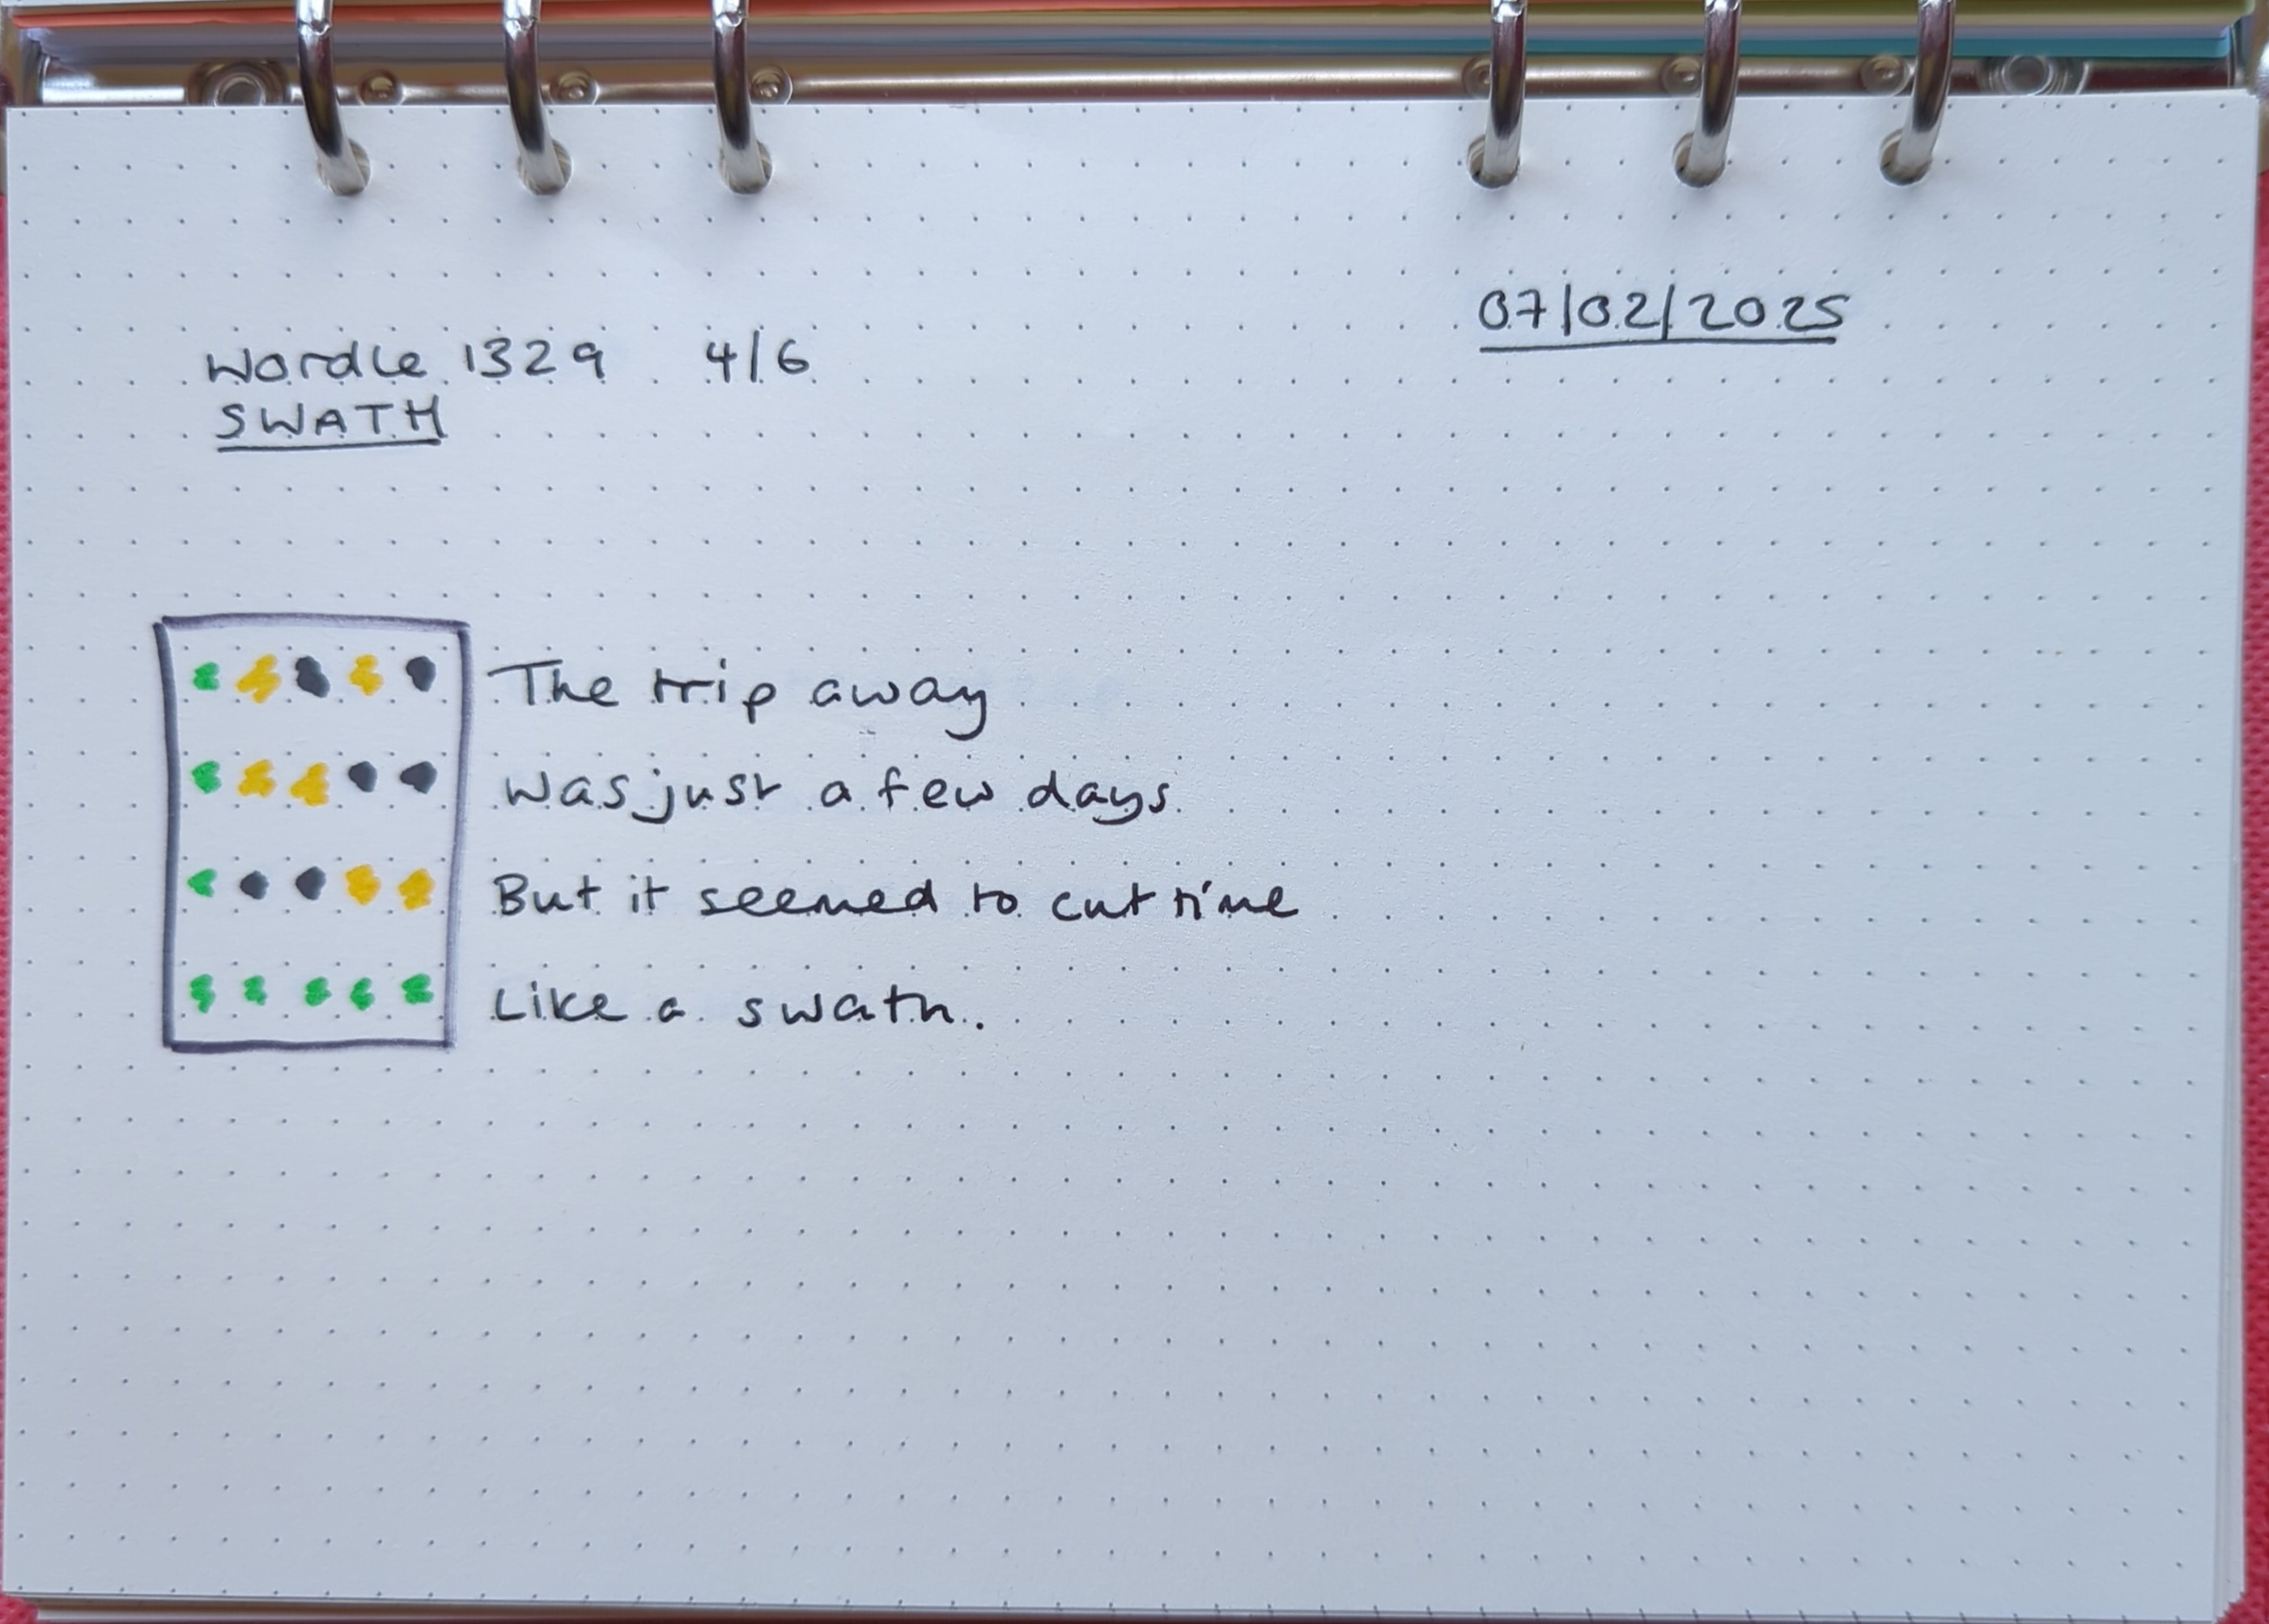 07/02/2025
Wordle 1329 4/6
SWATH
The trip away
was just a few days
But it seemed to cut time
Like a swath.